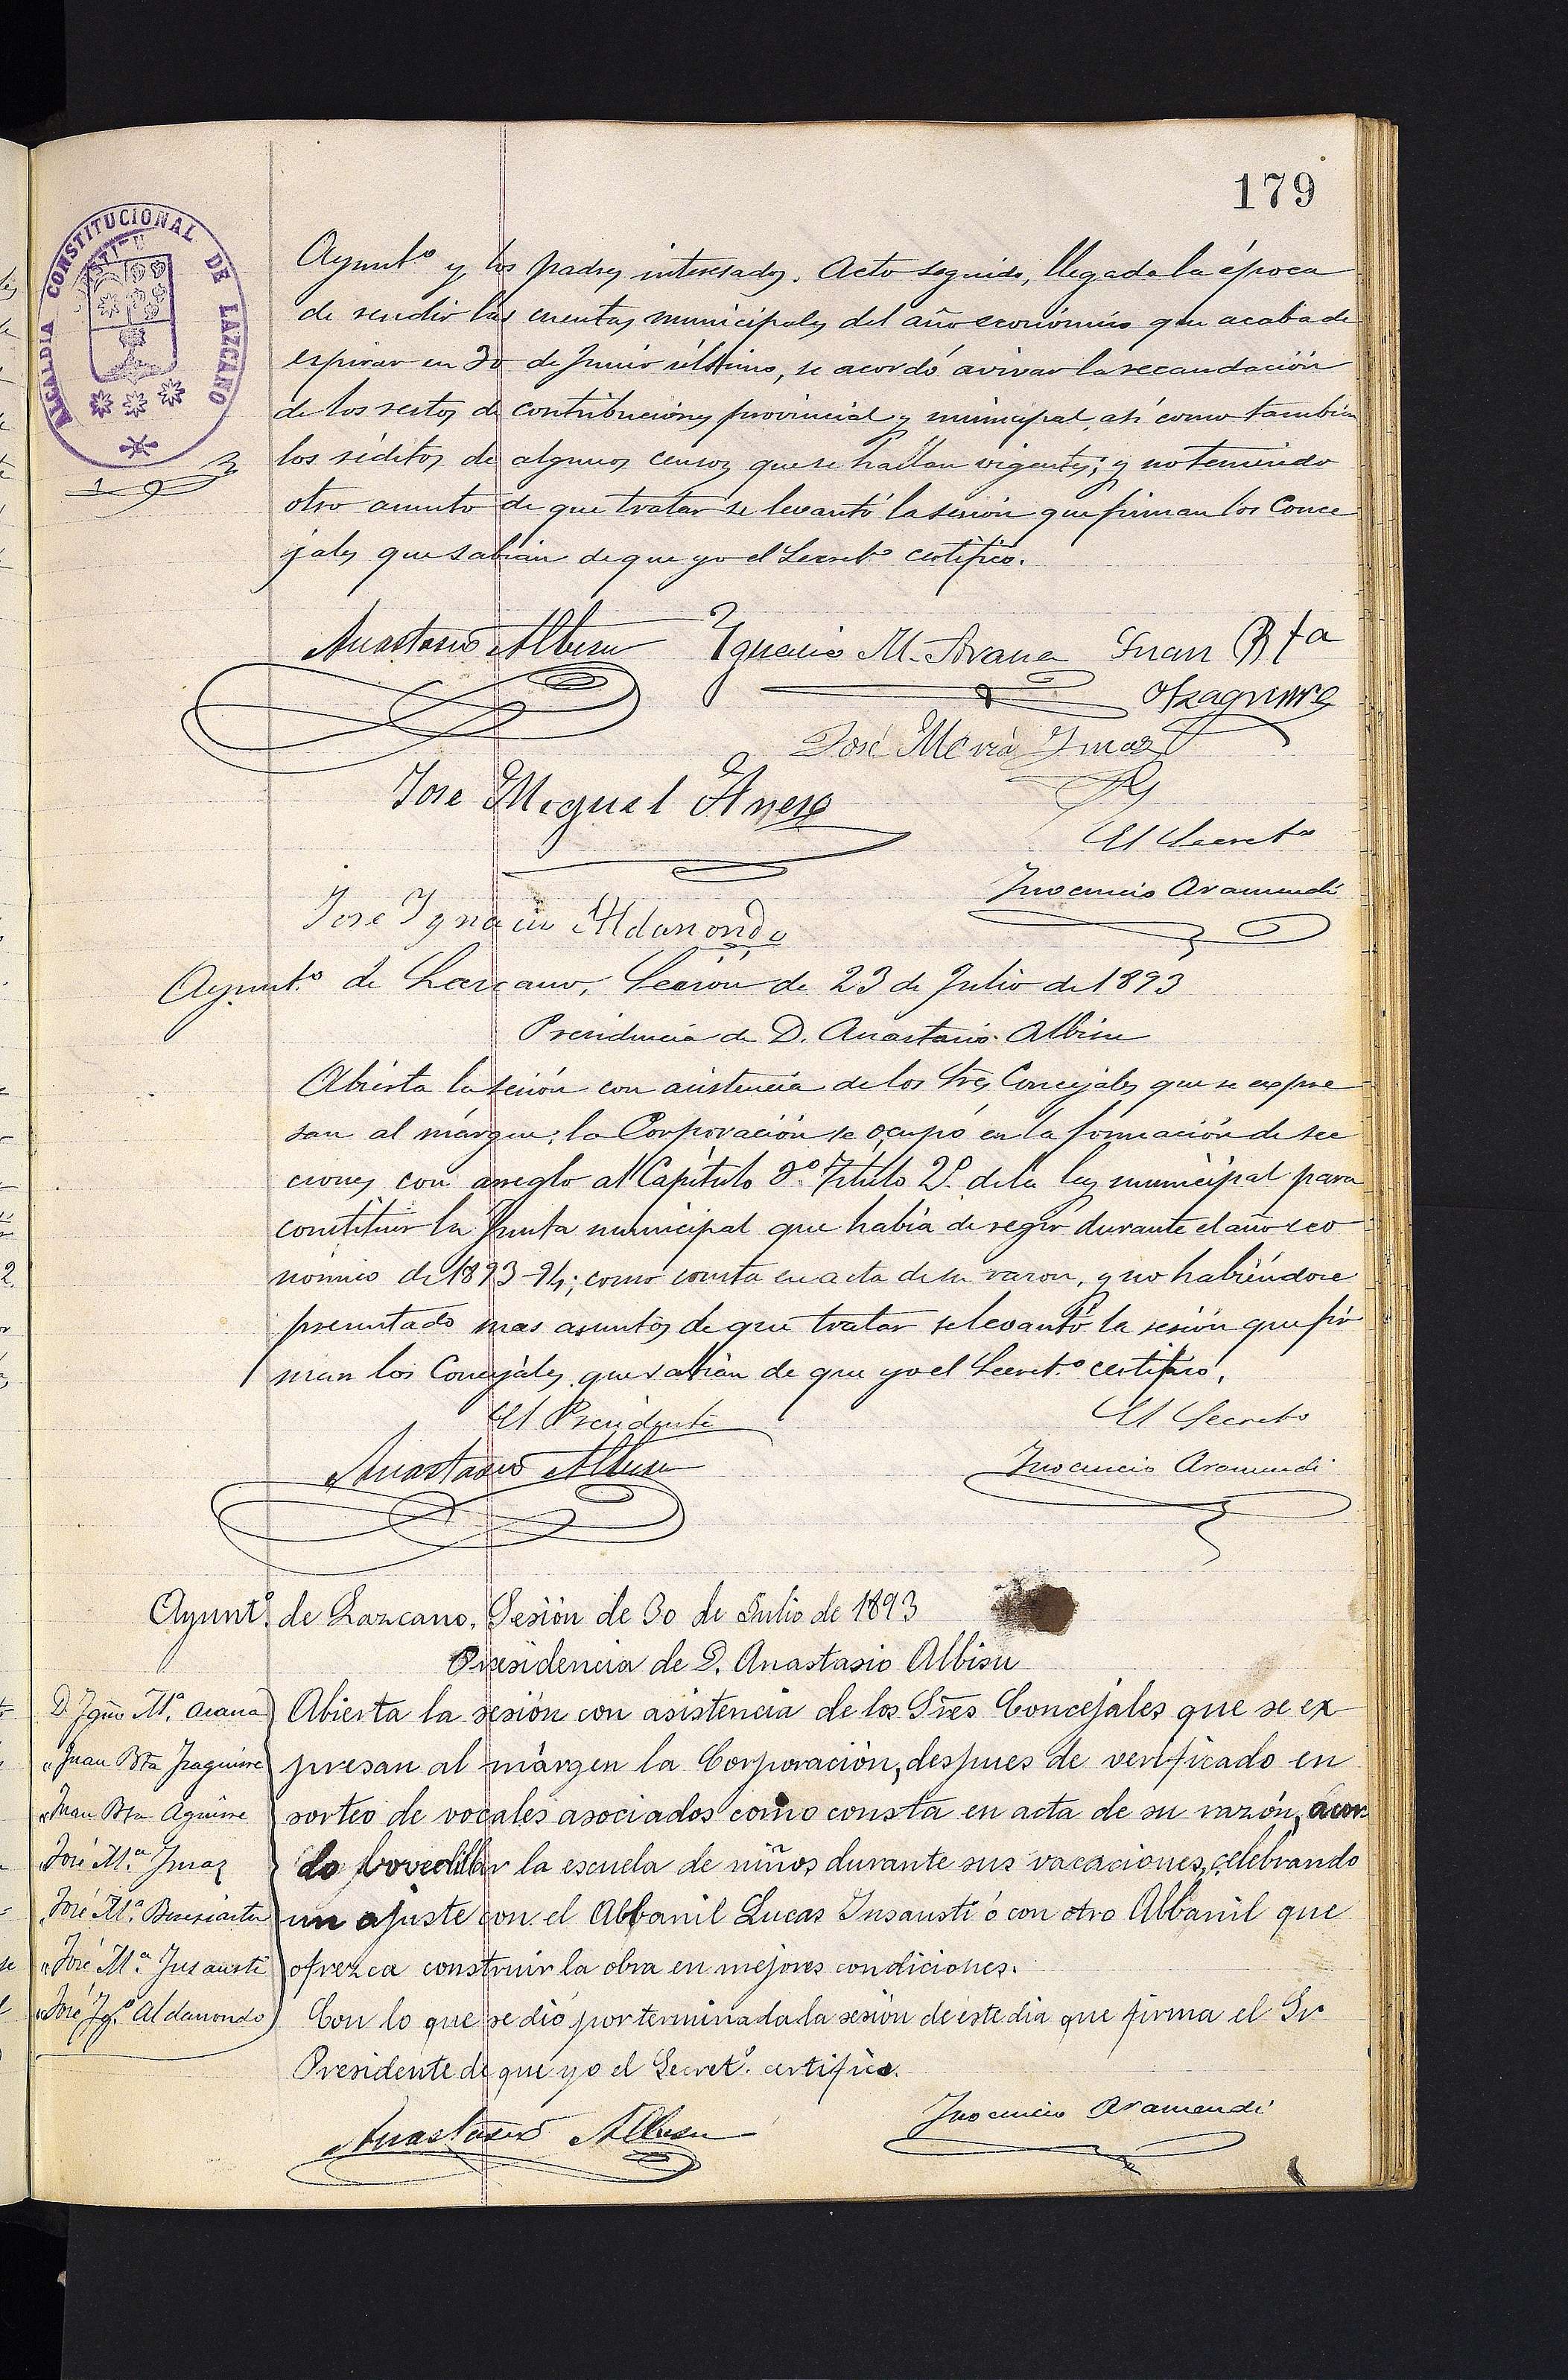 179
ALCALDIA CONSTITUCIONAL DE LAZCANO
Ayunt.º y los padres interesados. Acto seguido, llegada la época
de rendir las cuentas municipales del año económico que acaba de
espirar en 30 de Junio último, se acordó avivar la recaudación
de los restos de contribuciones provincial y municipal, así como tambien
los réditos de algunos censos que se hallan vigentes; y no teniendo
otro asunto de que tratar se levantó la sesión que firman los Conce
jales que sabian de que yo el Secretº certifico.
Anastasio Albisu Ignacio M. Arana Juan Bta
Yzaguirre
José Maria Ymaz
Jose Miguel
El Secretº
Inocencio Aramendi
José Ygnacio Aldanondo
Ayunt.º de Lazcano, Sesión de 23 de Julio de 1893
Presidencia de D. Anastasio Albisu
Abierta la sesión con asistencia de los Sres Concejales que se expre
san al márgen; la Corporación se ocupó en la formación de sec
ciones con areglo al Capítulo 2º Título 2º de la ley municipal para
constituir la Junta municipal que había de regir durante el año eco
nómico de 1893-94; como consta en acta de su razon, y no habiéndose
presentado mas asuntos de que tratar se levantó la sesión que fir
man los Concejales que sabian de que yo el Secret.º certifico.
El Presidente El Secretº
Anastasio Albisu Inocencio Aramendi
Ayunt.º de Lazcano, Sesión de 30 de Julio de 1893
Presidencia de D. Anastasio Albisu
D. Ygnº Mª Arana
" Juan Bta Yzaguirre
" Juan Bta Aguirre
" José M.ª Ymaz
" José Mª Beresiartu
" José M.ª Insausti
" José Ygº Aldanondo
Abierta la sesión con asistencia de los Sres Concejales que se ex
presan al márgen la Corporación, despues de verificado en
sorteo de vocales asociados como consta en acta de su razón, acor
do bovedillar la escuela de niños durante sus vacaciones, celebrando
un ajuste con el Albanil Lucas Insausti ó con otro Albanil que
ofrezca construir la obra en mejores condiciones.
Con lo que se dió por terminada la sesión de éste dia que firma el Sr
Presidente de que yo el Secretº. certifico.
Anastasio Albisu Inocencio Aramendi